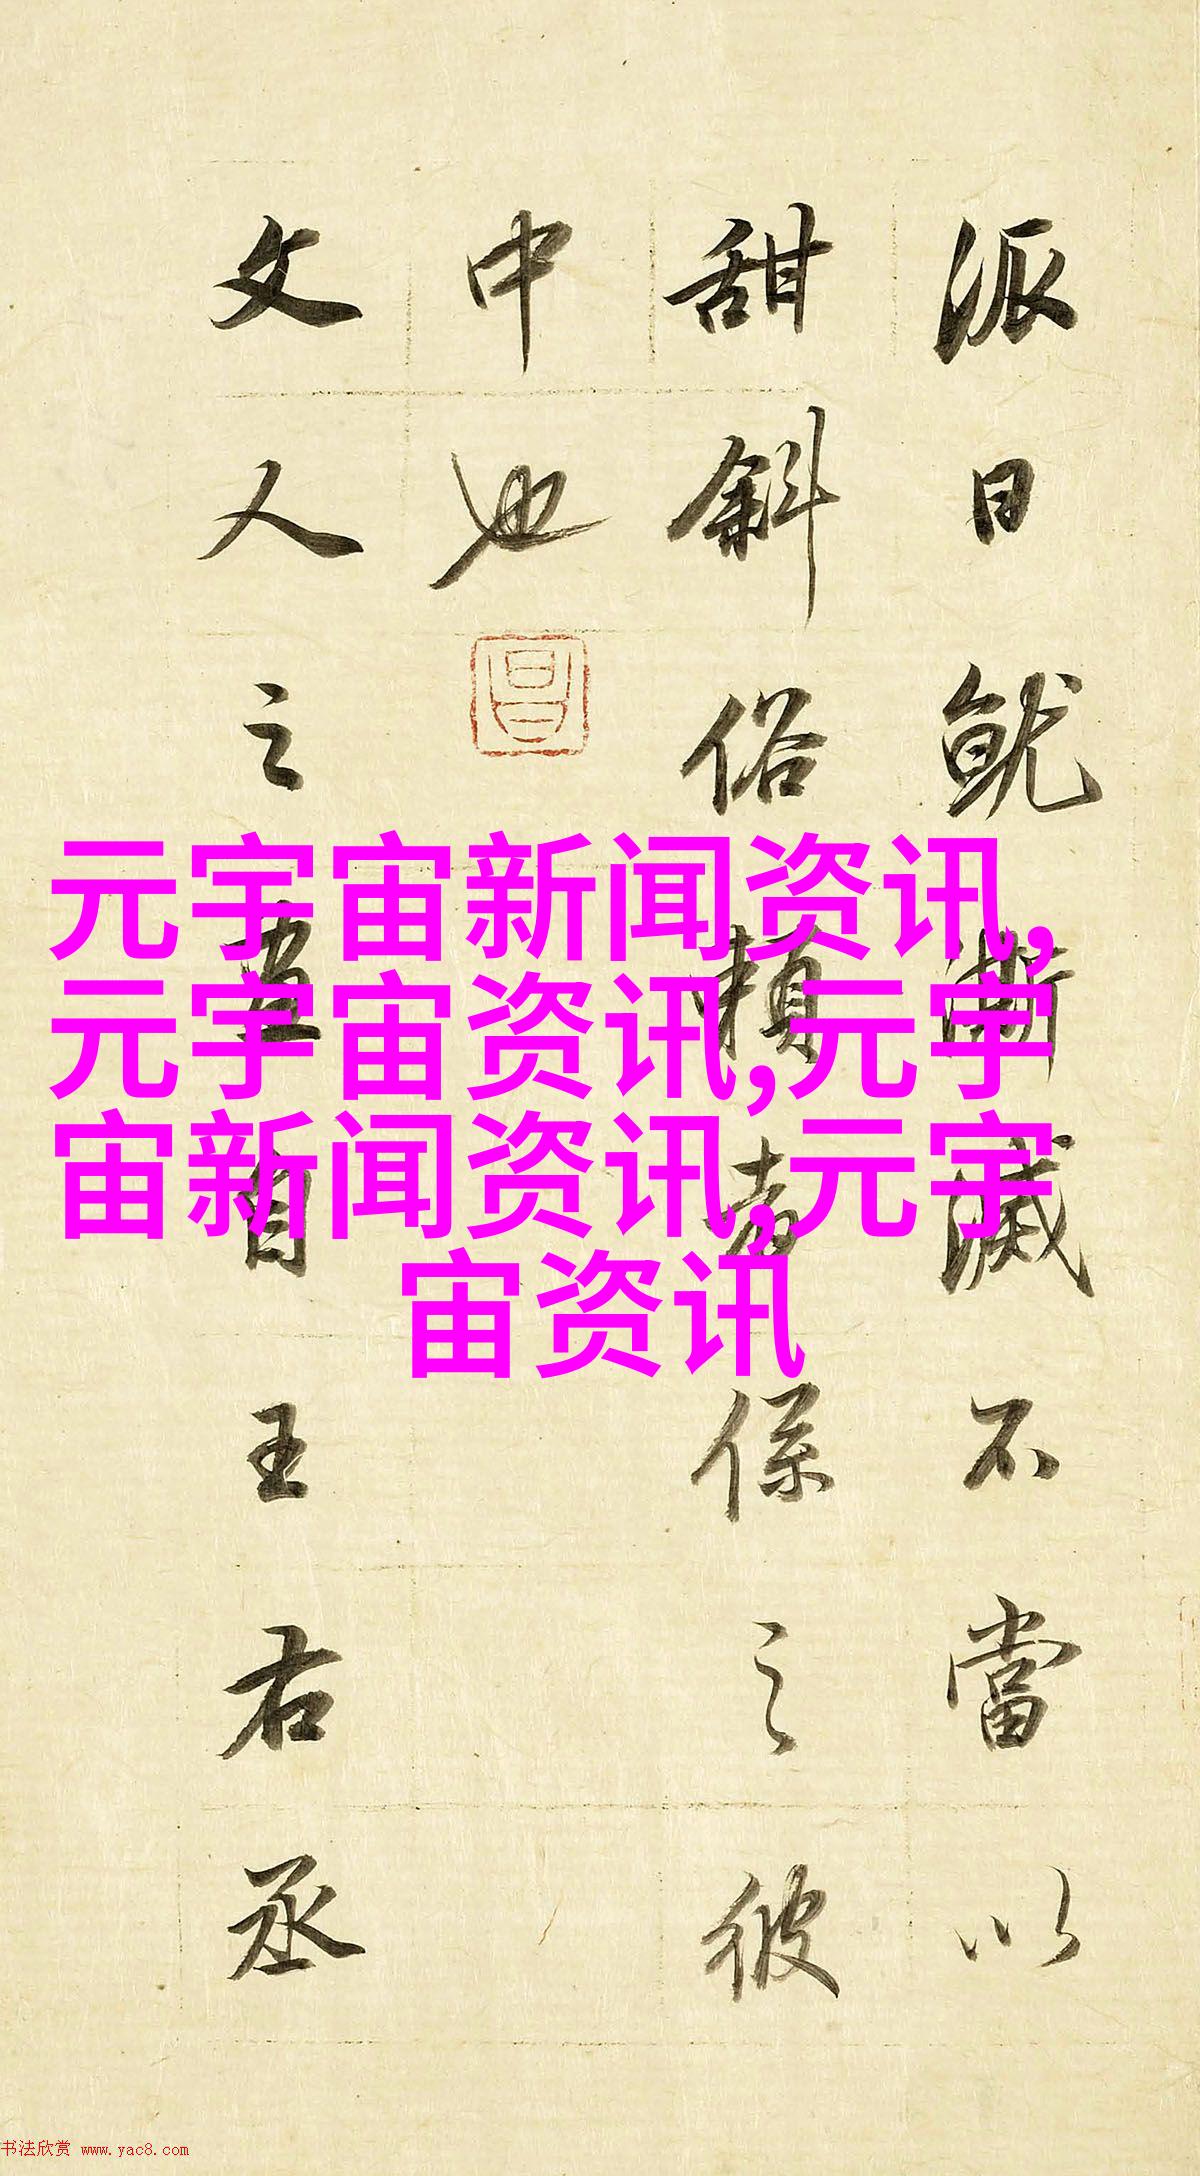 派日就澌滅不當以
甜斜俗賴者係之彼
中也
昌
文人之畫自王右丞
元宇宙新闻资讯,
元宇宙资讯,元宇
宙新闻资讯,元宇
宙资讯
书法欣赏 www.yac8.com